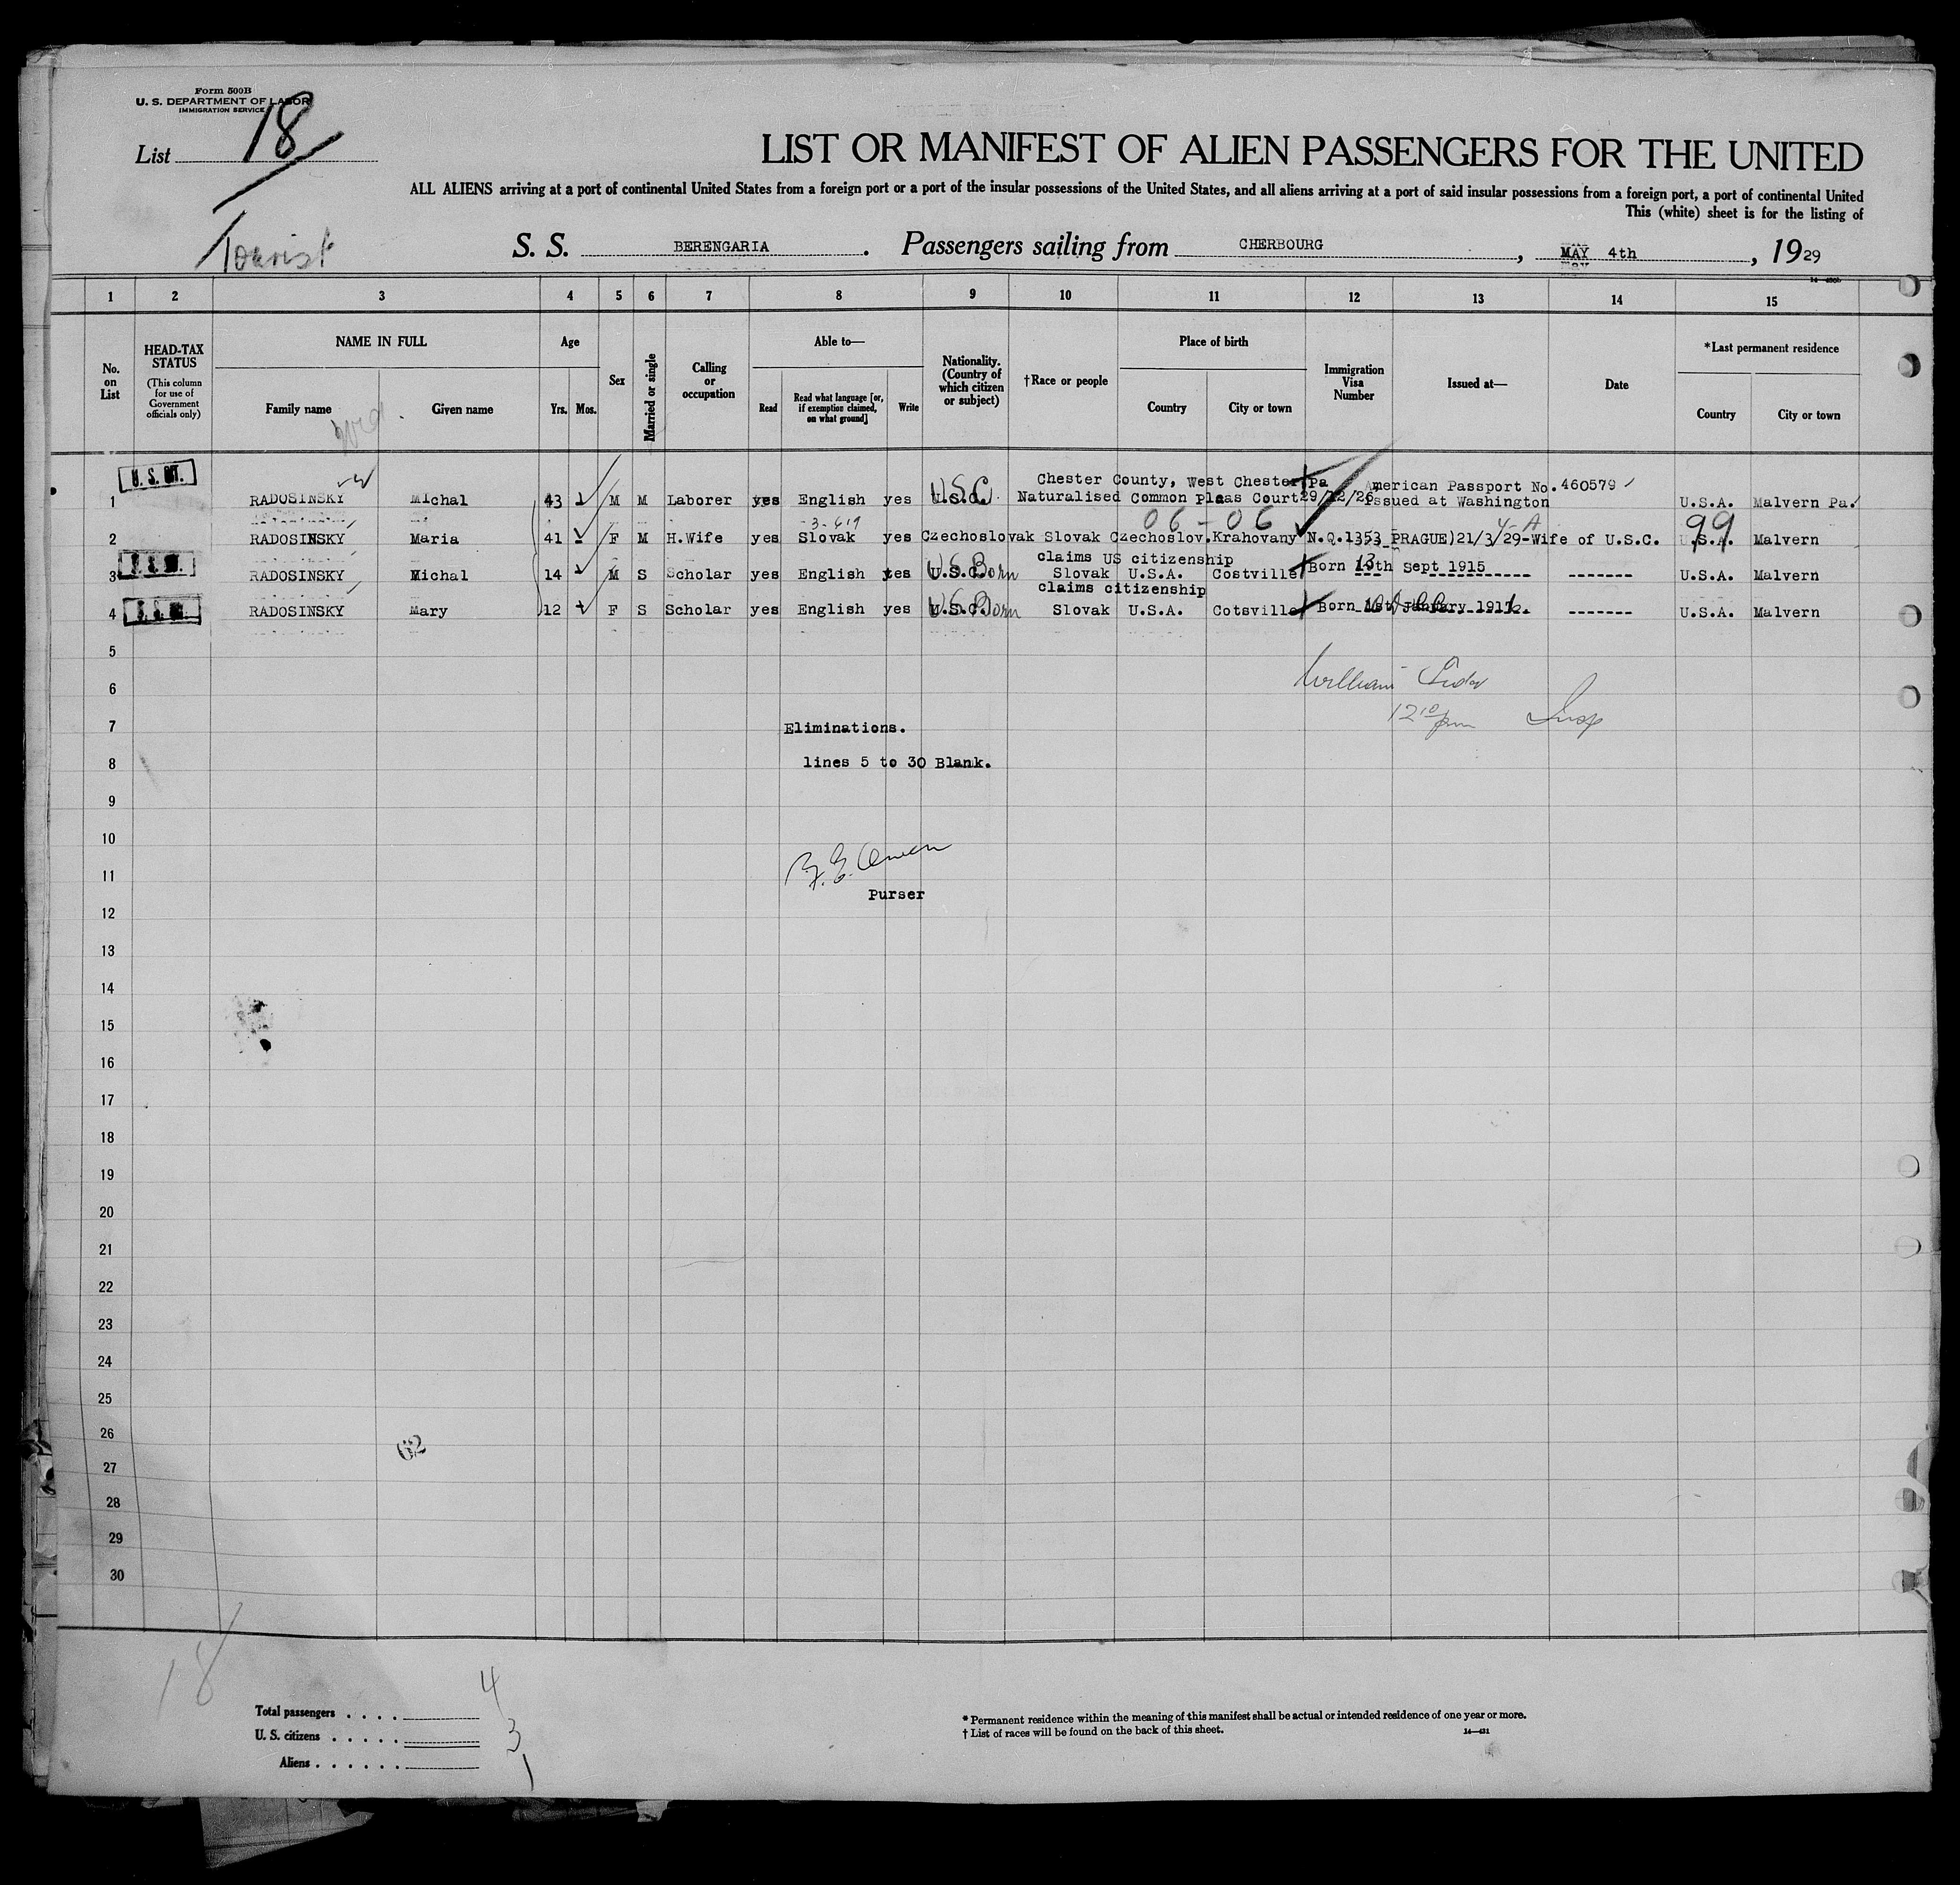 Form 500B
U. S. DEPARTMENT OF LABOR
IMMIGRATION SERVICE
List 18
Tourist
LIST OR MANIFEST OF ALIEN PASSENGERS FOR THE UNITED
ALL ALIENS arriving at a port of continental United States from a foreign port or a port of the insular possessions of the United States, and all aliens arriving at a port of said insular possessions from a foreign port, a port of continental United
This (white) sheet is for the listing of
S. S. BERENGARIA. Passengers sailing from CHERBOURG, MAY 4th, 1929
1 2 3 4 5 6 7 8 9 10 11 12 13 14 15
No. on List
HEAD-TAX STATUS
(This column for use of Government officials only)
NAME IN FULL
Family name
Given name
Age
Yrs. Mos.
Sex
Married or single
Calling or occupation
Able to—
Read
Read what language [or, if exemption claimed, on what ground]
Write
Nationality. (Country of which citizen or subject)
†Race or people
Place of birth
Country
City or town
Immigration Visa Number
Issued at—
Date
*Last permanent residence
Country
City or town
Chester County, West Chester Pa American Passport No. 460579
1 RADOSINSKY Michal 43 M M Laborer yes English yes U.S.C. Naturalised Common Pleas Court 29/12/26 Issued at Washington U.S.A. Malvern Pa.
3-619 06-06 4-A 99
2 RADOSINSKY Maria 41 F M H.Wife yes Slovak yes Czechoslovak Slovak Czechoslov. Krahovany N.Q.1353 PRAGUE)21/3/29-Wife of U.S.C. U.S.A. Malvern
claims US citizenship
3 RADOSINSKY Michal 14 M S Scholar yes English yes U.S. Born Slovak U.S.A. Costville Born 13th Sept 1915 ------- U.S.A. Malvern
claims citizenship
4 RADOSINSKY Mary 12 F S Scholar yes English yes U.S. Born Slovak U.S.A. Cotsville Born ------- U.S.A. Malvern
5
6
William
12 10 pm Insp
7 Eliminations.
8 lines 5 to 30 Blank.
9
10
11
Purser
12
13
14
15
16
17
18
19
20
21
22
23
24
25
26
62
27
28
29
30
18
Total passengers . . . . 4
U. S. citizens . . . . . 3
Aliens . . . . . . 1
* Permanent residence within the meaning of this manifest shall be actual or intended residence of one year or more.
† List of races will be found on the back of this sheet.
14—431